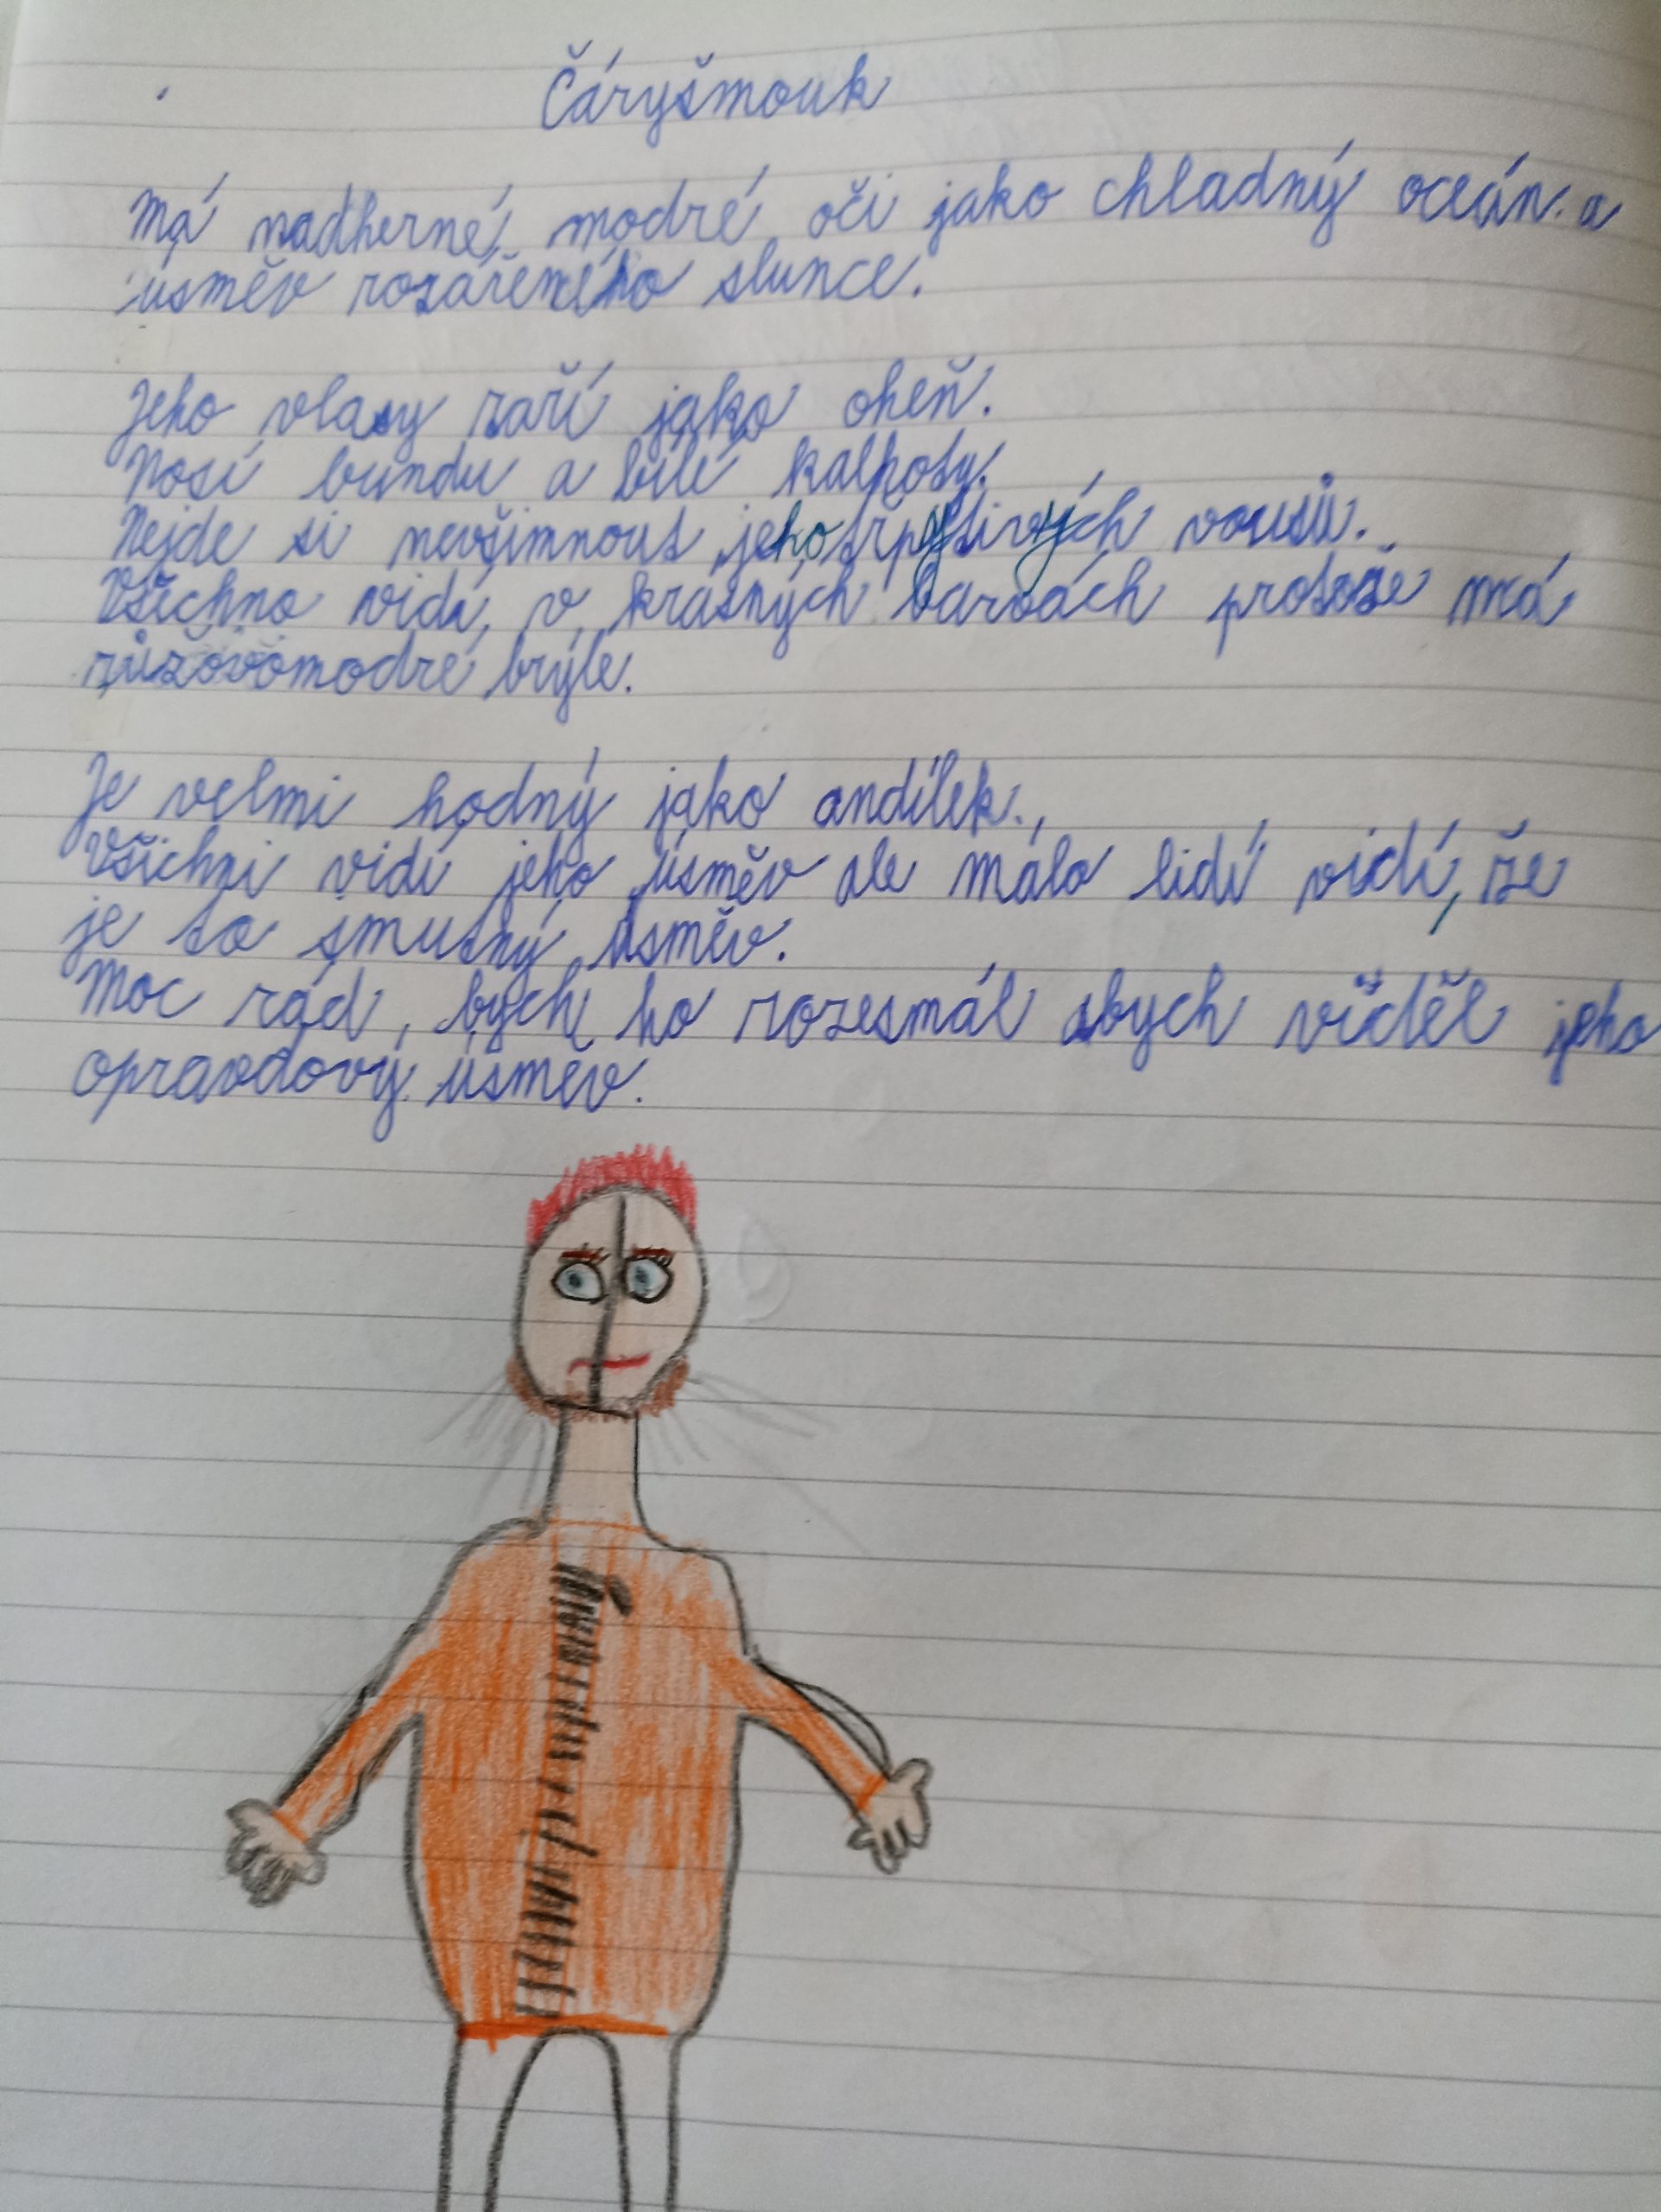 Čáryšmouk
Má nadherné modré oči jako chladný oceán. a
úsměv rozářeného slunce.
Jeho vlasy zaří jako oheň.
Nosí bundu a bílé kalhoty.
Nejde si nevšimnout jeho třpytivých vousů.
Všechno vidí v krásných barvách protože má
růžovomodré brýle.
Je velmi hodný jako andílek.
Všichni vidí jeho úsměv ale málo lidí vidí, že
je to smutný úsměv.
Moc rád, bych ho rozesmál abych viděl jeho
opravdový úsměv.